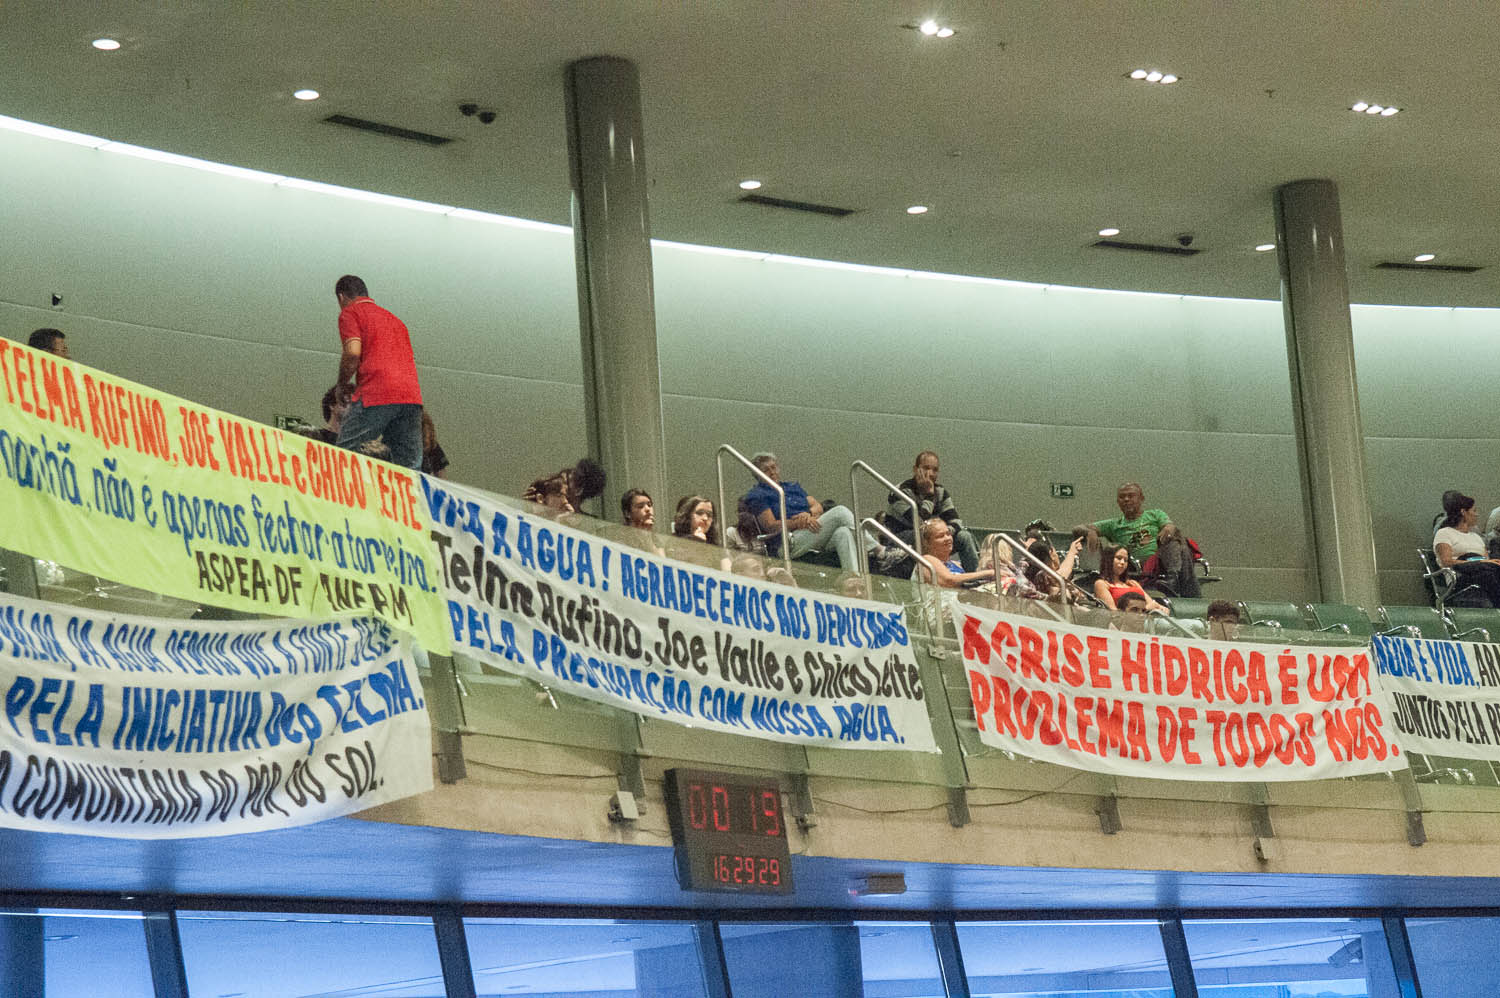 TELMA RUFINO, JOE VALLE e CHICO LEITE
manhã, não é apenas fechar a torneira.
ASPEA-DF /
DA ÁGUA DEPOIS QUE A FONTE SECA
PELA INICIATIVA Dep TELMA.
A COMUNITÁRIA DO PÔR DO SOL.
VIVA A ÁGUA! AGRADECEMOS AOS DEPUTADOS
Telma Rufino, Joe Valle e Chico Leite
PELA PREOCUPAÇÃO COM NOSSA ÁGUA.
A CRISE HÍDRICA É UM
PROBLEMA DE TODOS NÓS.
É VIDA,
JUNTOS PELA
00 19
16 29 29